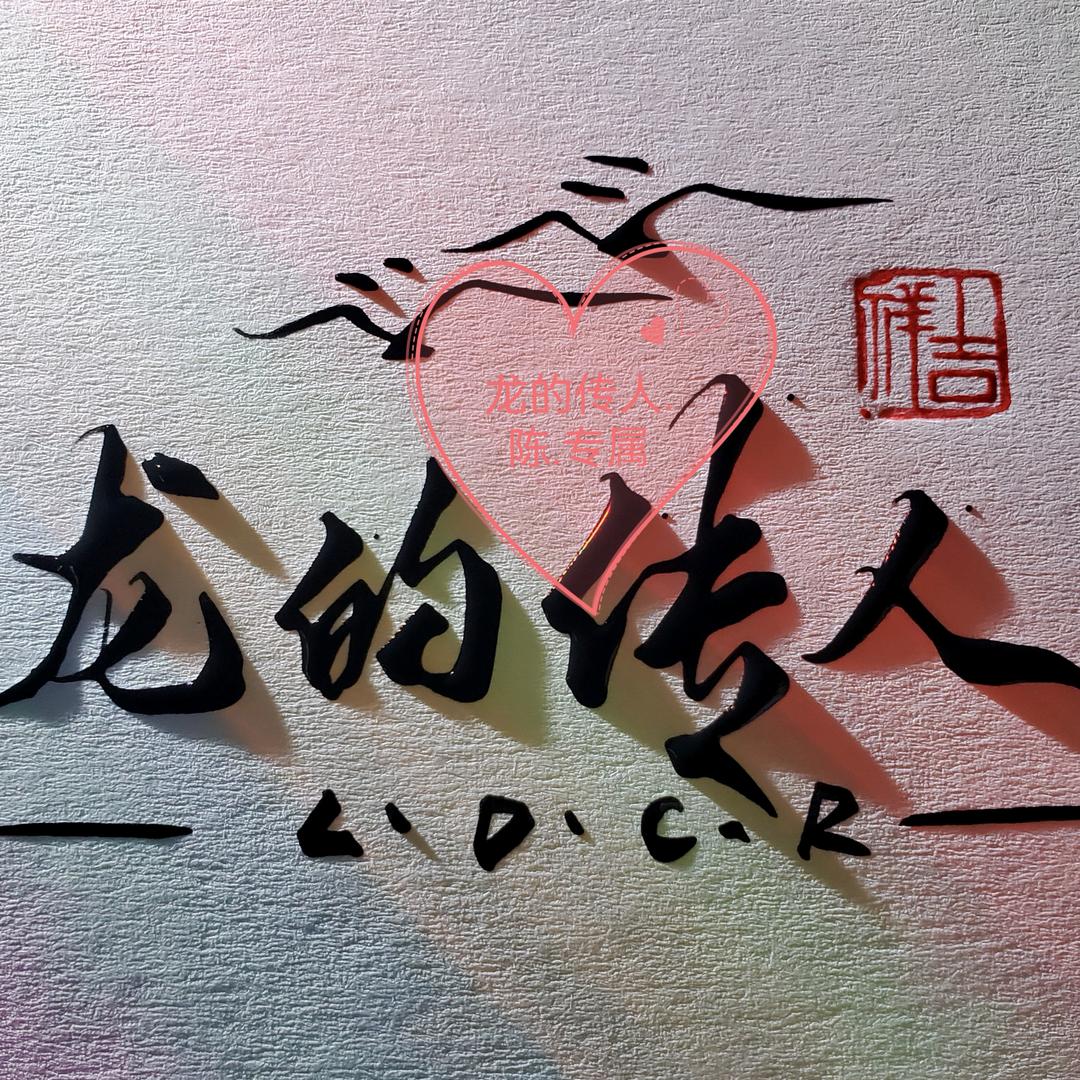 龙的传人.
陈.专属
上吉
祥
龙的传人
L·D·C·R